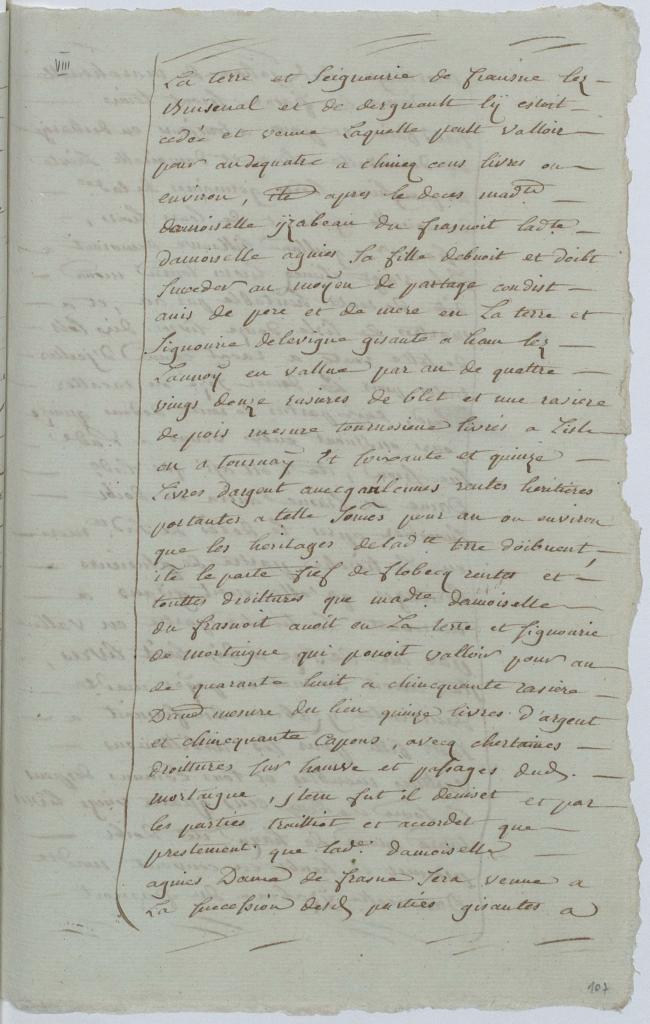 VIII
La terre et Seigneurie de frausne lez
Buisenal et de dergnault ly estoit
cedée et venue Laquelle peult valloir
pour an de quatre a chincq cens livres ou
environ, ite apres le deces madte
damoiselle yzabeau du frasnoit ladte
damoiselle agnies sa fille debuoit et doibt
succeder au moyen de partage condist
de pere et de mere en La terre et
signourie delevigne gisante a ham lez
Lannoy en vallue par an de quattre
vings douze rasieres de blet et une rasiere
de pois mesure tournosienne livrés a Lisle
ou a tournay Et soixante et quinze
Livres dargent avecq rentes heritieres
portantes a telle somes pour an ou environ
que les heritages deladtte trre doibuent,
ite le parte fief de flobecq rentes et
touttes droittures que madte damoiselle
du frasnoit avoit en La terre et signourie
de mortaigne qui pouoit valloir pour an
de quarante huit a chincquante rasiere
mesure du lieu quinze livres d'argent
et chincquante Capons, avecq chertaines
droittures sur hauwe et passages dud.
mortaigne, item fut il deviset et par
les parties traittiet et accordet que
prestement que lad. damoiselle
agnies Dame de frasne sera venue a
La succession desd parties gisantes a
107